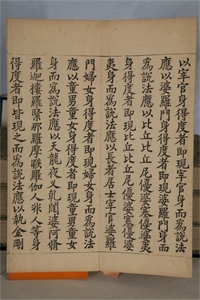 以宰官身得度者即現宰官身而爲說法
應以婆羅門身得度者即現婆羅門身而
爲說法應以比丘比丘尼優婆塞優婆夷
身得度者即現比丘比丘尼優婆塞優婆
夷身而爲說法應以長者居士宰官婆羅
門婦女身得度者即現婦女身而爲說法
應以童男童女身得度者即現童男童女
身而爲說法應以天龍夜叉乾闥婆阿脩
羅迦樓羅緊那羅摩睺羅伽人非人等身
得度者即皆現之而爲說法應以執金剛